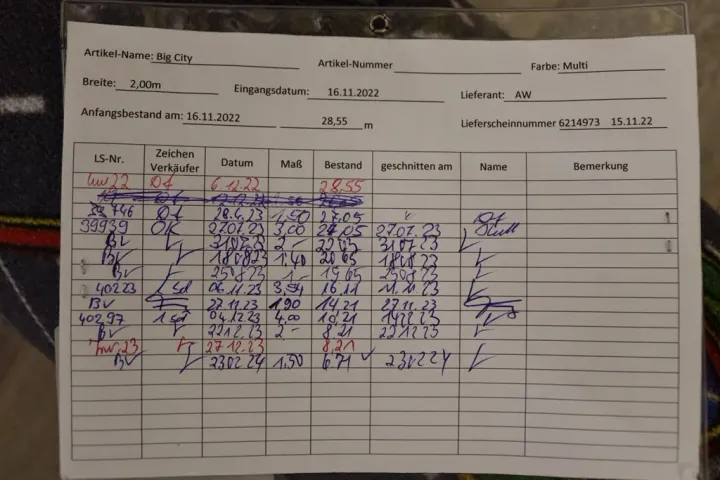 Artikel-Name: Big City Artikel-Nummer Farbe: Multi
Breite: 2,00m Eingangsdatum: 16.11.2022 Lieferant: AW
Anfangsbestand am: 16.11.2022 28,55 m Lieferscheinnummer 6214973 15.11.22
LS-Nr. Zeichen Verkäufer Datum Maß Bestand geschnitten am Name Bemerkung
22 6.12.22 28,55
746 28.4.23 1,50 27,05
39939 OK 27.07.23 3,00 27.07.23
BV 31.07.23 2,- 31.07.23
BV 1,40 20,65
BV 1,- 19,65
40223 Sd 06.11.23 16,11
BV 27.11.23 1,90 14,21 27.11.23
40297 Sd 04.12.23 4,00 10,21
BV 22.12.23 2,- 8,21 22.12.23
23 27.12.23 8,21
BV 23.02.24 1,50 6,71 23.02.24